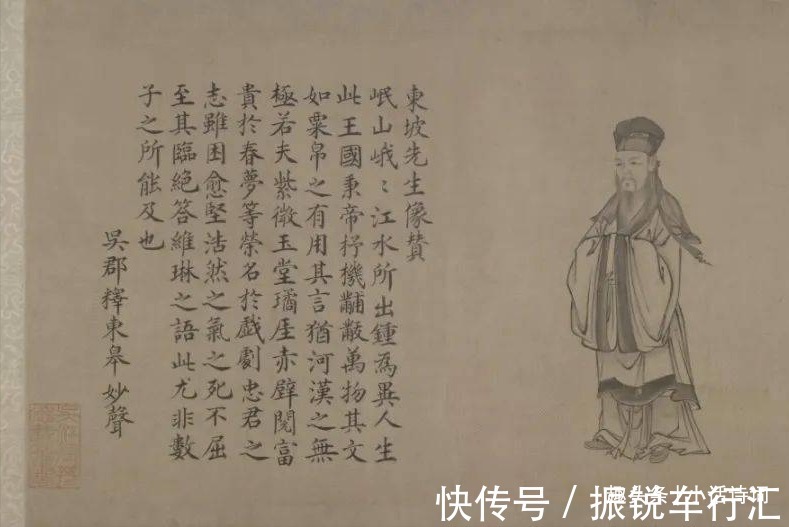 東坡先生像贊
岷山峨〻江水所出鍾為異人生
此王國秉帝杼機黼黻萬物其文
如粟帛之有用其言猶河漢之無
極若夫紫微玉堂璚厓赤壁閱富
貴於春夢等榮名於戲劇忠君之
志雖困愈堅浩然之氣之死不屈
至其臨絕答維琳之語此尤非數
子之所能及也
吳郡釋東皋妙聲
快传号 / 振锐车行汇